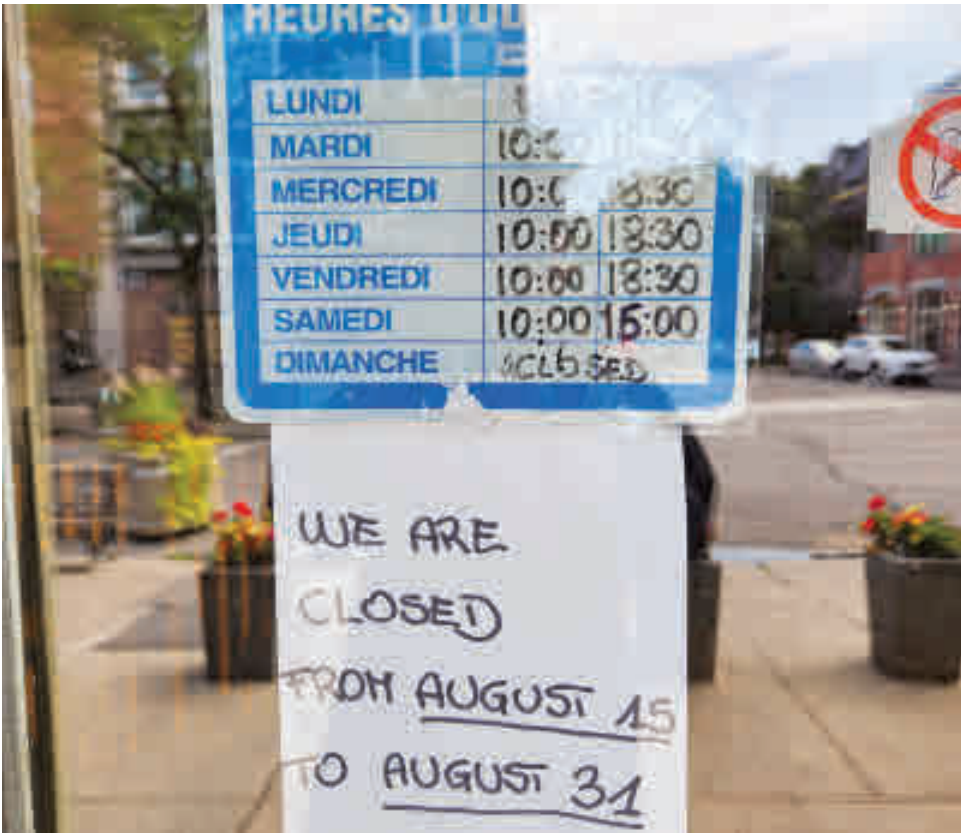 HEURES D'OU
LUNDI 1
MARDI 10:0
MERCREDI 10:0 18:30
JEUDI 10:00 18:30
VENDREDI 10:00 18:30
SAMEDI 10:00 15:00
DIMANCHE CLOSED
WE ARE
CLOSED
FROM AUGUST 15
TO AUGUST 31